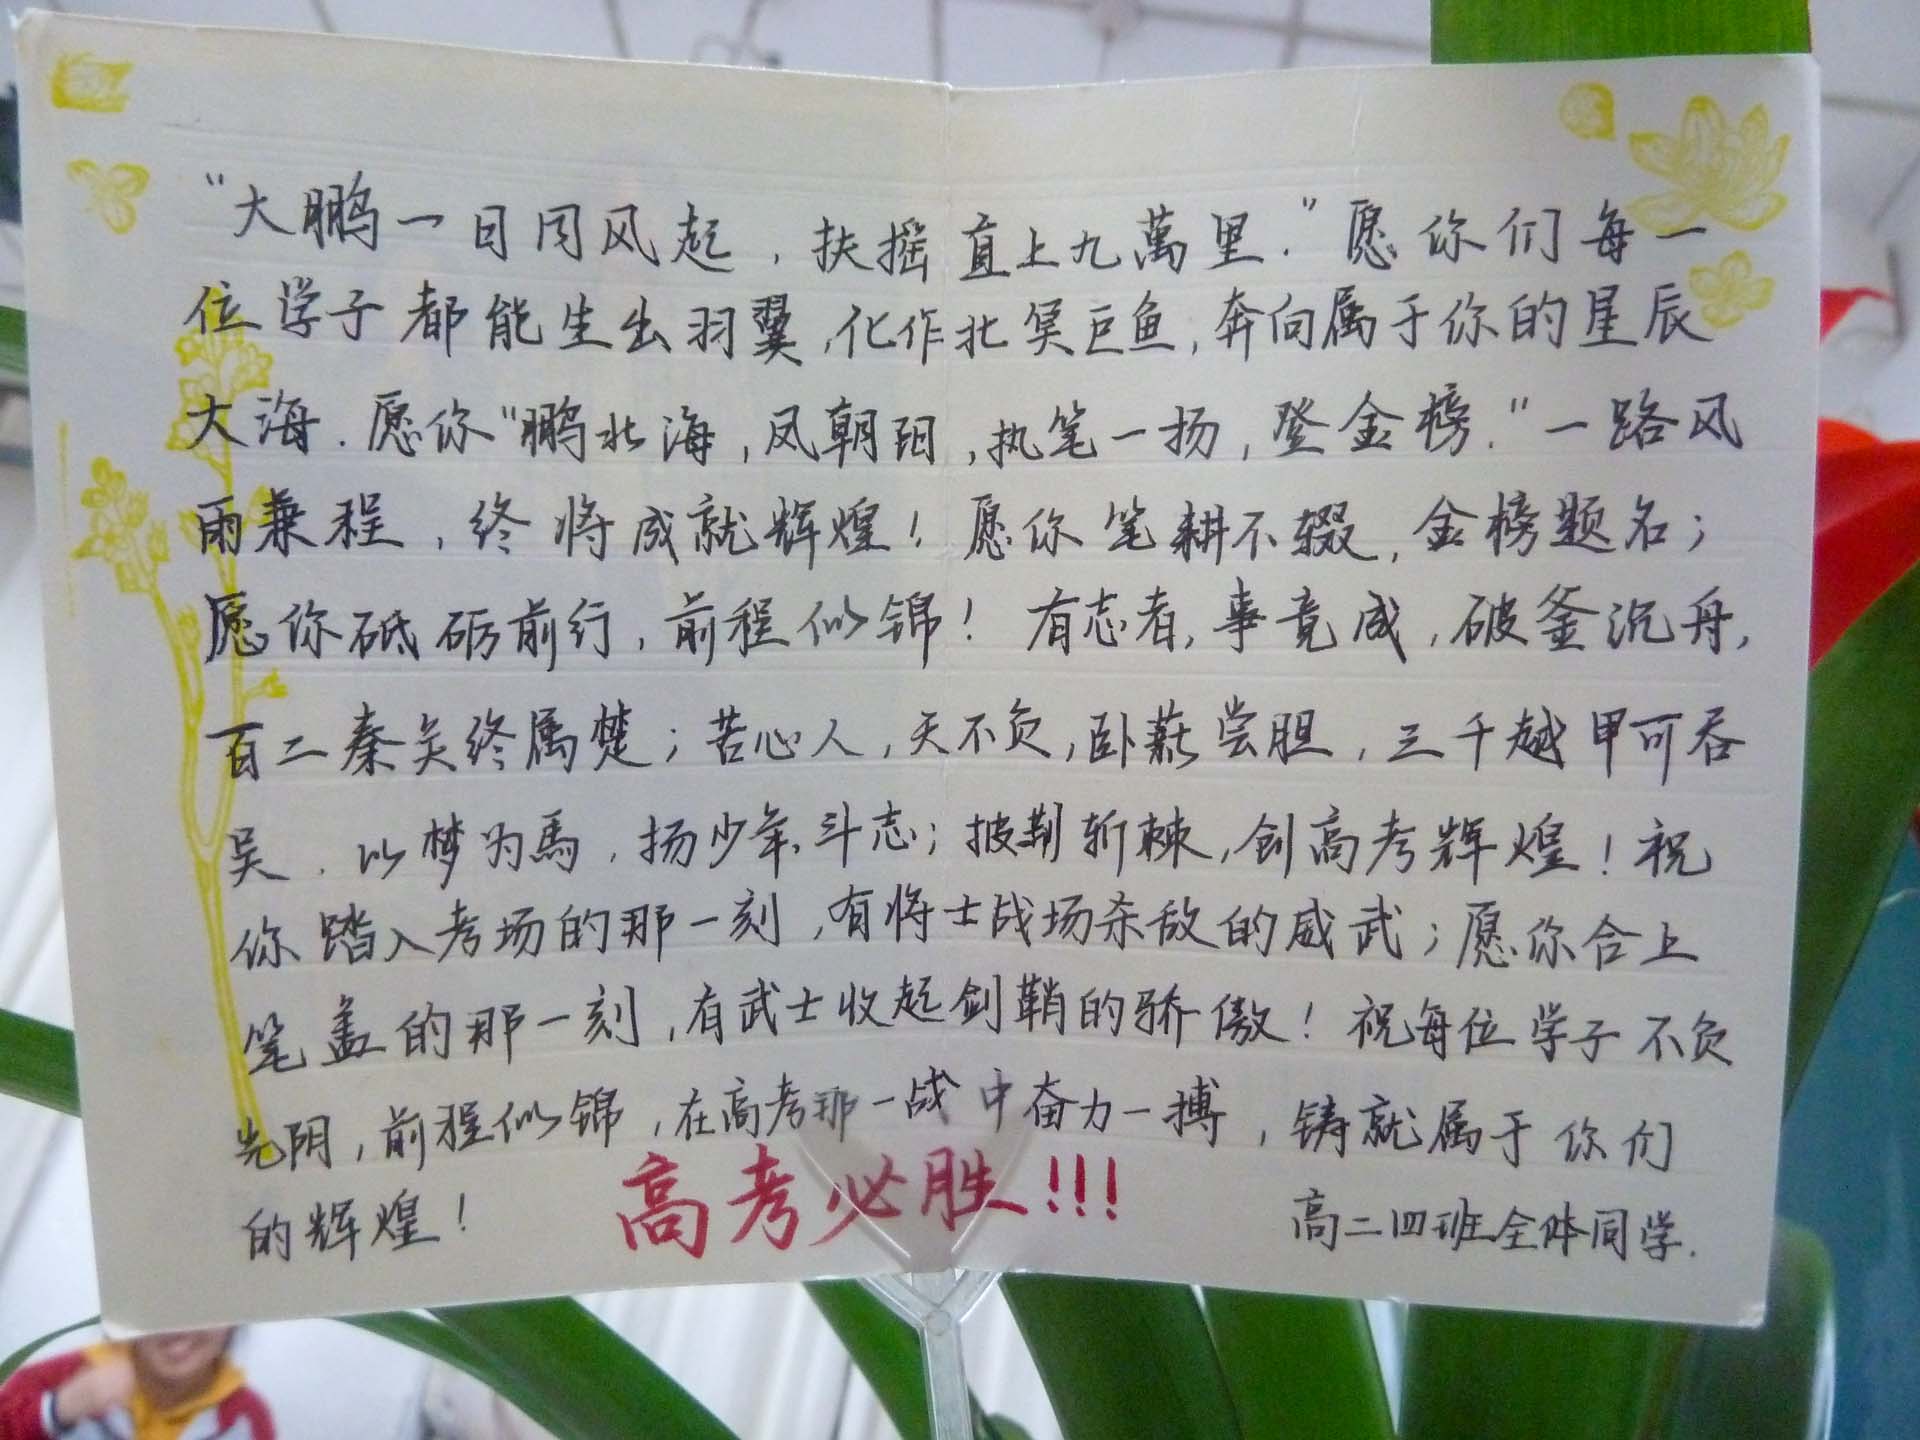 “大鹏一日同风起，扶摇直上九萬里.”愿你们每一
位学子都能生出羽翼,化作北冥巨鱼,奔向属于你的星辰
大海.愿你“鹏北海,凤朝阳,执笔一扬,登金榜.”一路风
雨兼程,终将成就辉煌！愿你笔耕不辍,金榜题名；
愿你砥砺前行,前程似锦！有志者,事竟成,破釜沉舟,
百二秦关终属楚；苦心人,天不负,卧薪尝胆,三千越甲可吞
吴.以梦为馬,扬少年斗志；披荆斩棘,创高考辉煌！祝
你踏入考场的那一刻,有将士战场杀敌的威武；愿你合上
笔盖的那一刻,有武士收起剑鞘的骄傲！祝每位学子不负
光阴,前程似锦,在高考那一战中奋力一搏,铸就属于你们
的辉煌！
高考必胜!!!
高二四班全体同学.